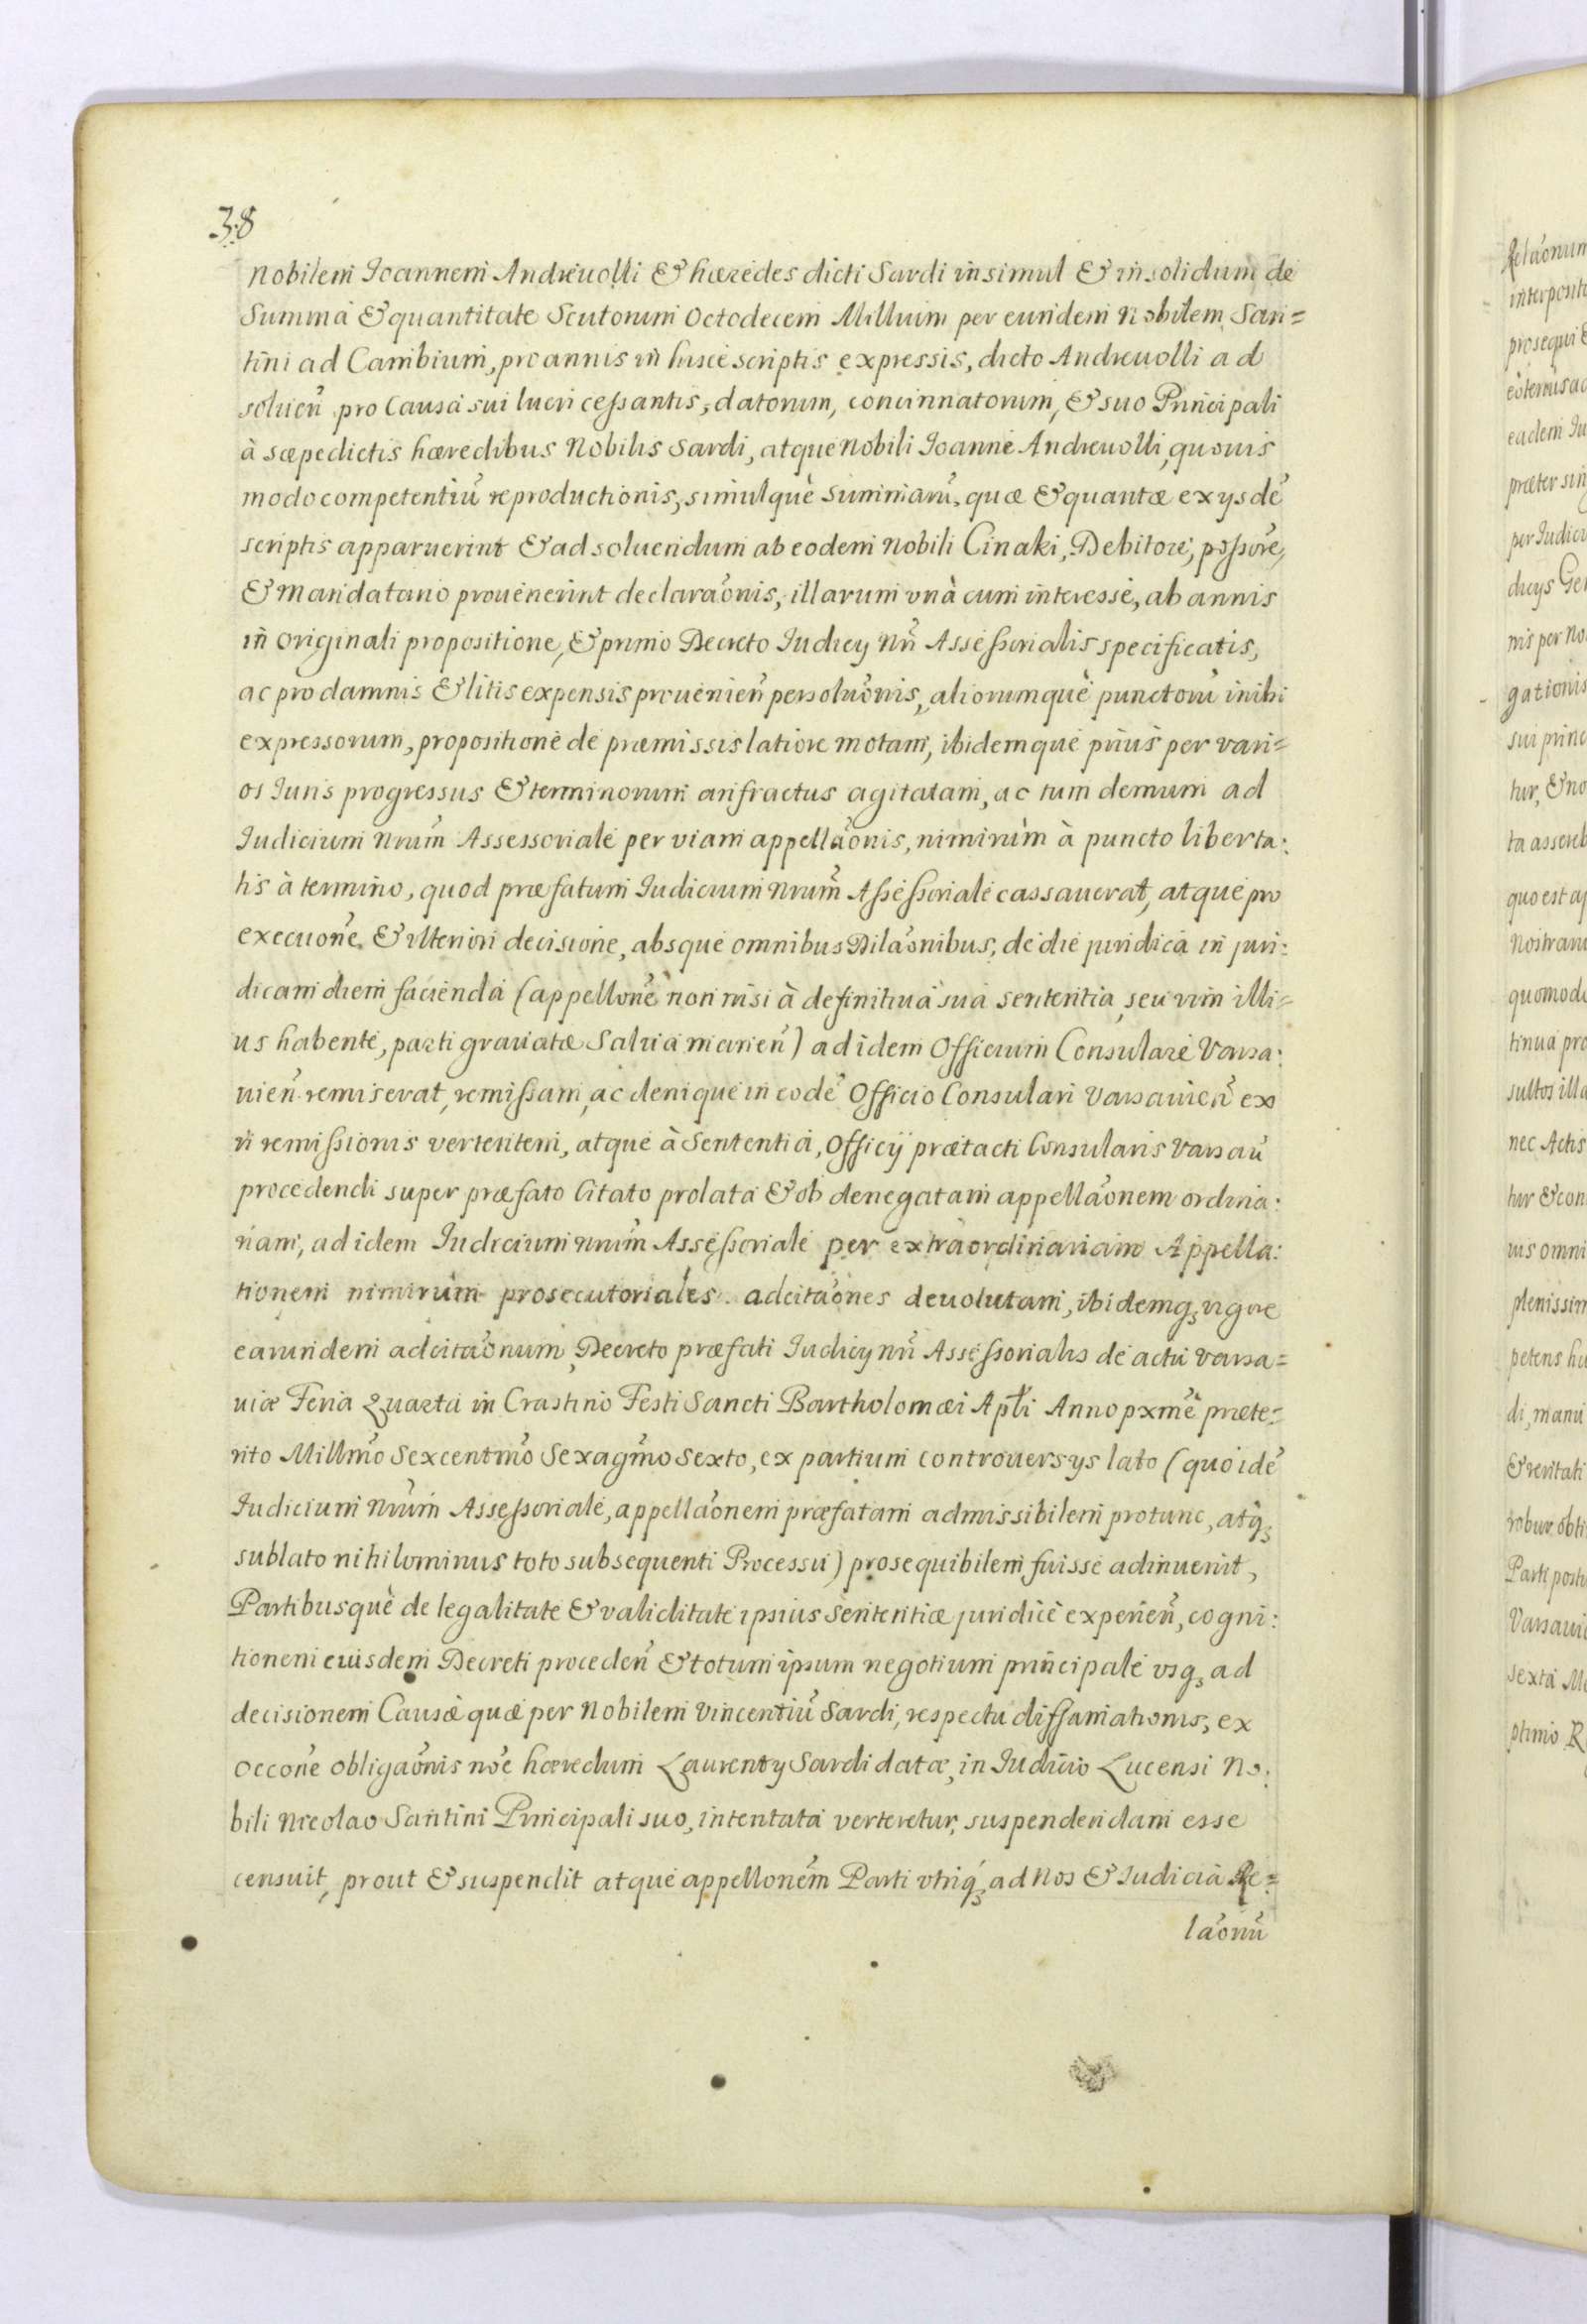 38
Nobilem Ioannem Andreuolli & hæredes dicti Sardi insimul & insolidum de
Summa & quantitate Scutorum Octodecem Millium per eundem Nobilem San=
tini ad Cambium, pro annis in hisce scriptis expressis, dicto Andreuolli ad
soluen̄ pro causa sui lucri cessantis, datorum, concinnatorum, & suo Principali
à sæpedictis hæredibus Nobilis Sardi, atque Nobili Ioanne Andreuolli, quouis
modo competentiū reproductionis, simulquè Summarū, quæ & quantæ ex ysdē
scriptis apparuerint & ad soluendum ab eodem Nobili Cinaki, Debitore, possōre,
& Mandatario prouenerint declaraōnis, illarum vnà cum interesse, ab annis
in Originali propositione, & primo Decreto Iudicy Nrī Assessorialis specificatis,
ac pro damnis & litis expensis prouenien̄ persoluōnis, aliorumquè punctorū inibi
expressorum, propositione de præmissis latiore motam, ibidemque prius per vari=
os Iuris progressus & terminorum anfractus agitatam, ac tum demum ad
Iudicium Nrum̄ Assessoriale per viam appellāonis, nimirùm à puncto liberta:
tis à termino, quod præfatum Iudicium Nrum̄ Assessoriale cassauerat, atque pro
execuōne & vlteriori decisione, absque omnibus Dilāonibus, de die juridica in juri:
dicam diem facienda (appellōne non nisi à definitiua sua sententia, seu vim illi=
us habente, parti grauatæ salua manen̄) ad idem Officium Consulare Varsa:
uien̄ remiserat, remissam, ac denique in eodē Officio Consulari Varsauien̄ ex
ri remissionis vertentem, atque à Sententia, Officij prætacti Consularis Varsaū
procedendi super præfato Citato prolata & ob denegatam appellāonem ordina:
riam, ad idem Iudicium nrum̄ Assessoriale per extraordinariam Appella:
tionem nimirùm prosecutoriales adcitāones deuolutam, ibidemq₃ vigore
earundem adcitāonum, Decreto præfati Iudicy nrī Assessorialis de actu Varsa=
uiæ Feria Quarta in Crastino Festi Sancti Bartholomæi Apłi Anno pxmē præte=
rito Millmō Sexcentmō Sexagmō Sexto, ex partium controuersys lato (quo idē
Iudicium Nrum̄ Assessoriale, appellāonem præfatam admissibilem protunc, atq₃
sublato nihilominus toto subsequenti Processu) prosequibilem fuisse adinuenit,
Partibusquè de legalitate & validitate ipsius Sententiæ juridicè experien̄, cogni:
tionem euisdem Decreti proceden̄ & totum ipsum negotium principale vsq₃ ad
decisionem Causæ quæ per Nobilem Vincentiū Sardi, respectu diffamationis, ex
Occōne obligaōnis nōe hæredum Laurenty Sardi datæ, in Iudicio Lucensi No:
bili Nicolao Santini Principali suo, intentata verteretur, suspendendam esse
censuit, prout & suspendit atque appellonēm Parti vtriq₃ ad Nos & Iudicia Re=
lāonū